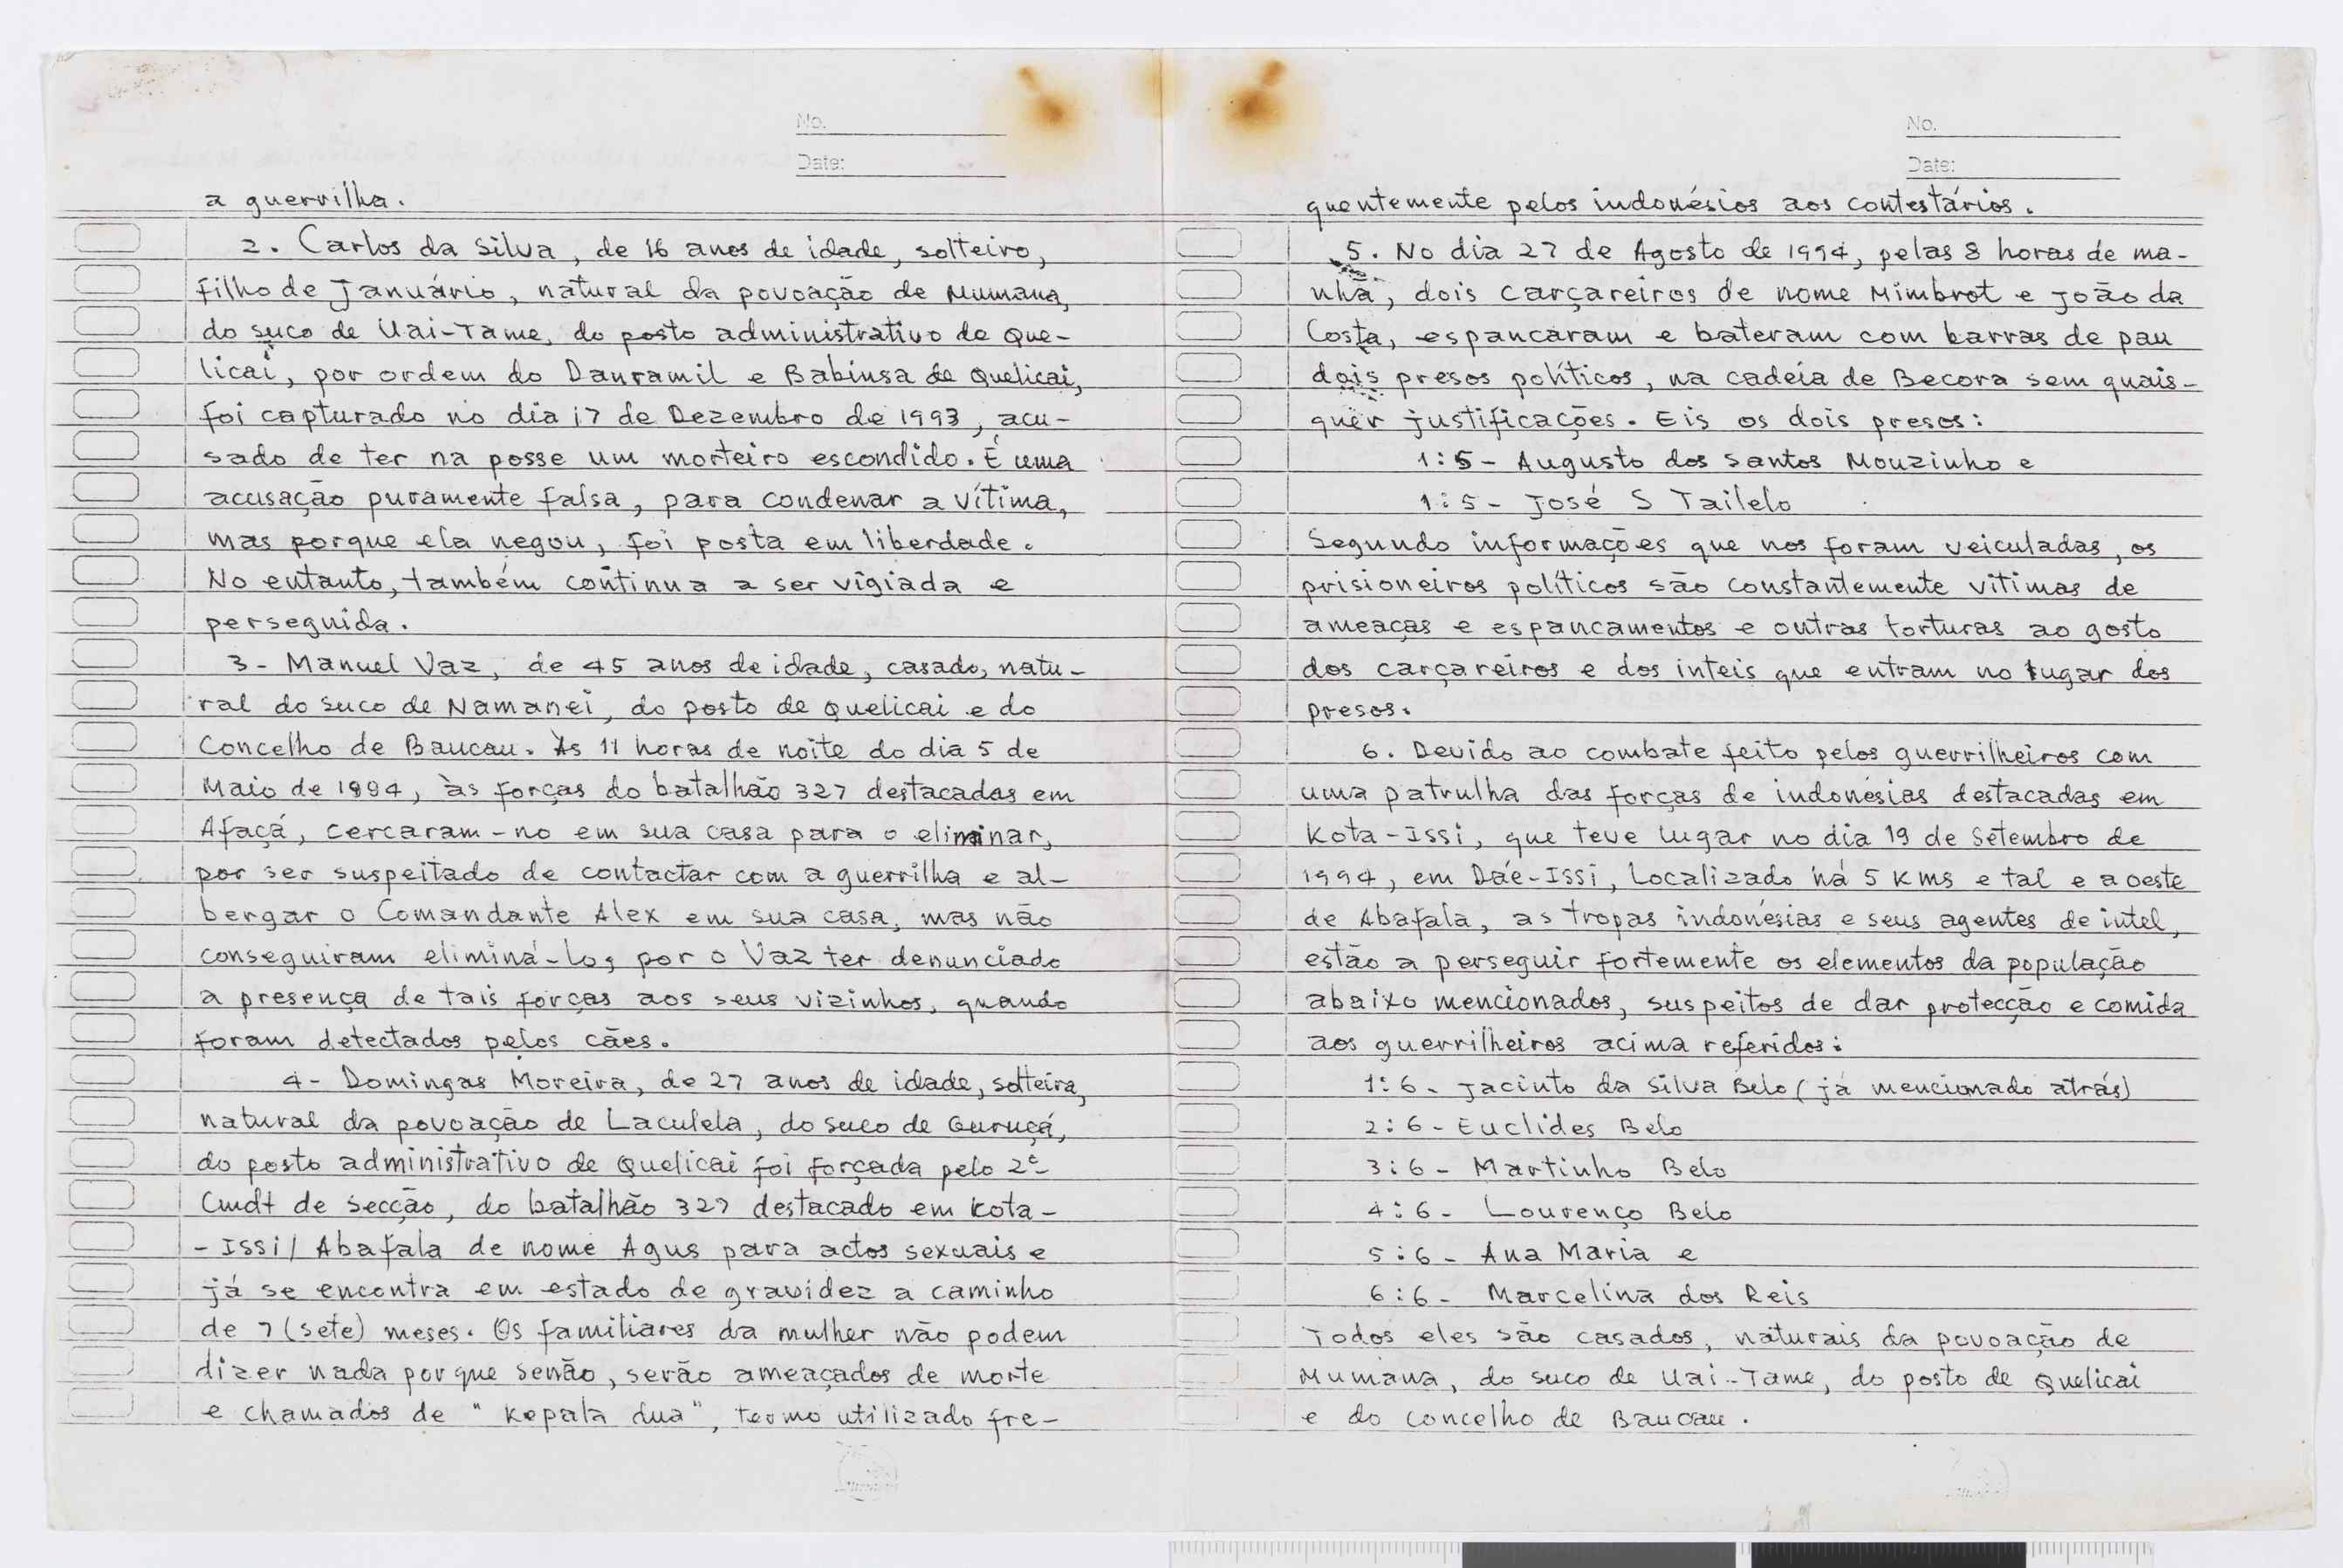 No.
Date:
a guerrilha.
2. Carlos da Silva, de 16 anos de idade, solteiro,
filho de Januário, natural da povoação de Mumana,
do suco de Uai-Tame, do posto administrativo de Que-
licai, por ordem do Danramil e Babinsa de Quelicai,
foi capturado no dia 17 de Dezembro de 1993, acu-
sado de ter na posse um morteiro escondido. É uma
acusação puramente falsa, para condenar a vítima,
mas porque ela negou, foi posta em liberdade.
No entanto, também continua a ser vigiada e
perseguida.
3- Manuel Vaz, de 45 anos de idade, casado, natu-
ral do suco de Namanei, do posto de Quelicai e do
Concelho de Baucau. Às 11 horas de noite do dia 5 de
Maio de 1994, às forças do batalhão 327 destacadas em
Afaçá, cercaram-no em sua casa para o eliminar,
por ser suspeitado de contactar com a guerrilha e al-
bergar o Comandante Alex em sua casa, mas não
conseguiram eliminá-lo, por o Vaz ter denunciado
a presença de tais forças aos seus vizinhos, quando
foram detectados pelos cães.
4- Domingas Moreira, de 27 anos de idade, solteira,
natural da povoação de Laculela, do suco de Guruçá,
do posto administrativo de Quelicai foi forçada pelo 2º
Cmdt de secção, do batalhão 327 destacado em Kota-
-Issi/Abafala de nome Agus para actos sexuais e
já se encontra em estado de gravidez a caminho
de 7 (sete) meses. Os familiares da mulher não podem
dizer nada porque senão, serão ameaçados de morte
e chamados de "Kepala dua", termo utilizado fre-
No.
Date:
quentemente pelos indonésios aos contestários.
5. No dia 27 de Agosto de 1994, pelas 8 horas de ma-
nhã, dois carçareiros de nome Mimbrot e João da
Costa, espancaram e bateram com barras de pau
dois presos políticos, na cadeia de Becora sem quais-
quer justificações. Eis os dois presos:
1:5- Augusto dos Santos Mouzinho e
1:5- José S Tailelo
Segundo informações que nos foram veiculadas, os
prisioneiros políticos são constantemente vitimas de
ameaças e espancamentos e outras torturas ao gosto
dos carçareiros e dos inteis que entram no lugar dos
presos.
6. Devido ao combate feito pelos guerrilheiros com
uma patrulha das forças de indonésias destacadas em
Kota-Issi, que teve lugar no dia 19 de Setembro de
1994, em Dáe-Issi, Localizado há 5 Kms e tal e a oeste
de Abafala, as tropas indonésias e seus agentes de intel,
estão a perseguir fortemente os elementos da população
abaixo mencionados, suspeitos de dar protecção e comida
aos guerrilheiros acima referidos:
1:6- Jacinto da Silva Belo (já mencionado atrás)
2:6- Euclides Belo
3:6- Martinho Belo
4:6- Lourenço Belo
5:6- Ana Maria e
6:6- Marcelina dos Reis
Todos eles são casados, naturais da povoação de
Mumana, do suco de Uai-Tame, do posto de Quelicai
e do concelho de Baucau.